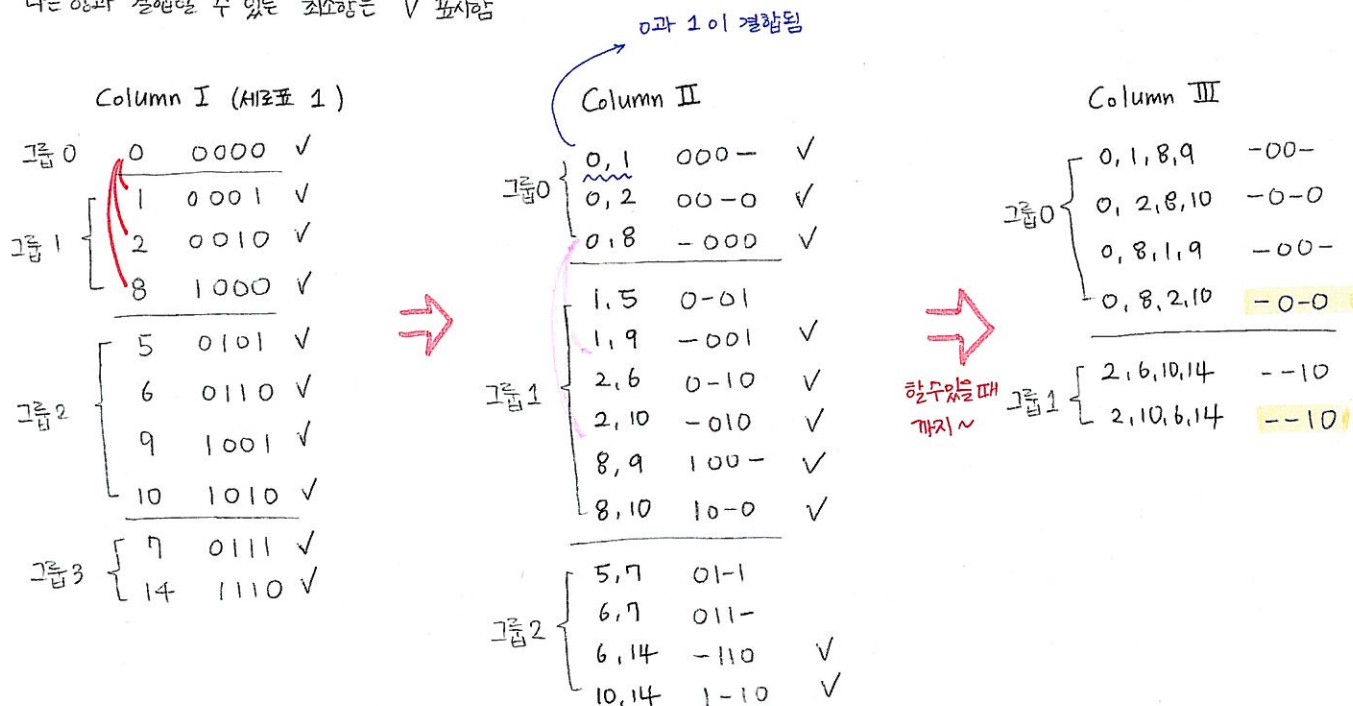 다른 항과 결합할 수 있는 최소항은 ✓ 표시함
0과 1이 결합됨
Column I (세로표 1)
그룹 0
0 0000 ✓
그룹 1
1 0001 ✓
2 0010 ✓
8 1000 ✓
그룹 2
5 0101 ✓
6 0110 ✓
9 1001 ✓
10 1010 ✓
그룹 3
7 0111 ✓
14 1110 ✓
Column II
그룹0
0,1 000- ✓
0,2 00-0 ✓
0,8 -000 ✓
그룹 1
1,5 0-01
1,9 -001 ✓
2,6 0-10 ✓
2,10 -010 ✓
8,9 100- ✓
8,10 10-0 ✓
그룹 2
5,7 01-1
6,7 011-
6,14 -110 ✓
10,14 1-10 ✓
할 수 있을 때
까지~
Column III
그룹0
0,1,8,9 -00-
0,2,8,10 -0-0
0,8,1,9 -00-
0,8,2,10 -0-0
그룹 1
2,6,10,14 --10
2,10,6,14 --10